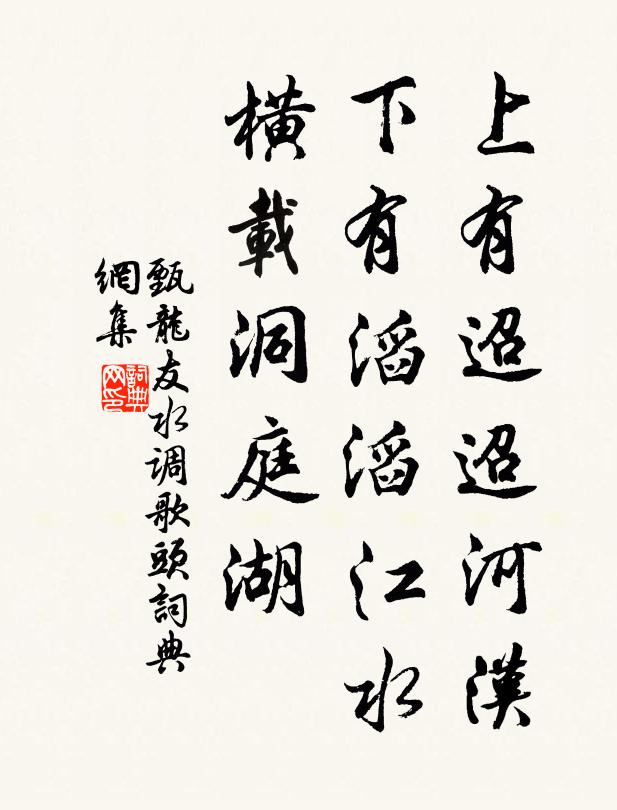 上有迢迢河漢
下有滔滔江水
橫載洞庭湖
甄龍友水调歌頭詞典
網集
詞典
网印